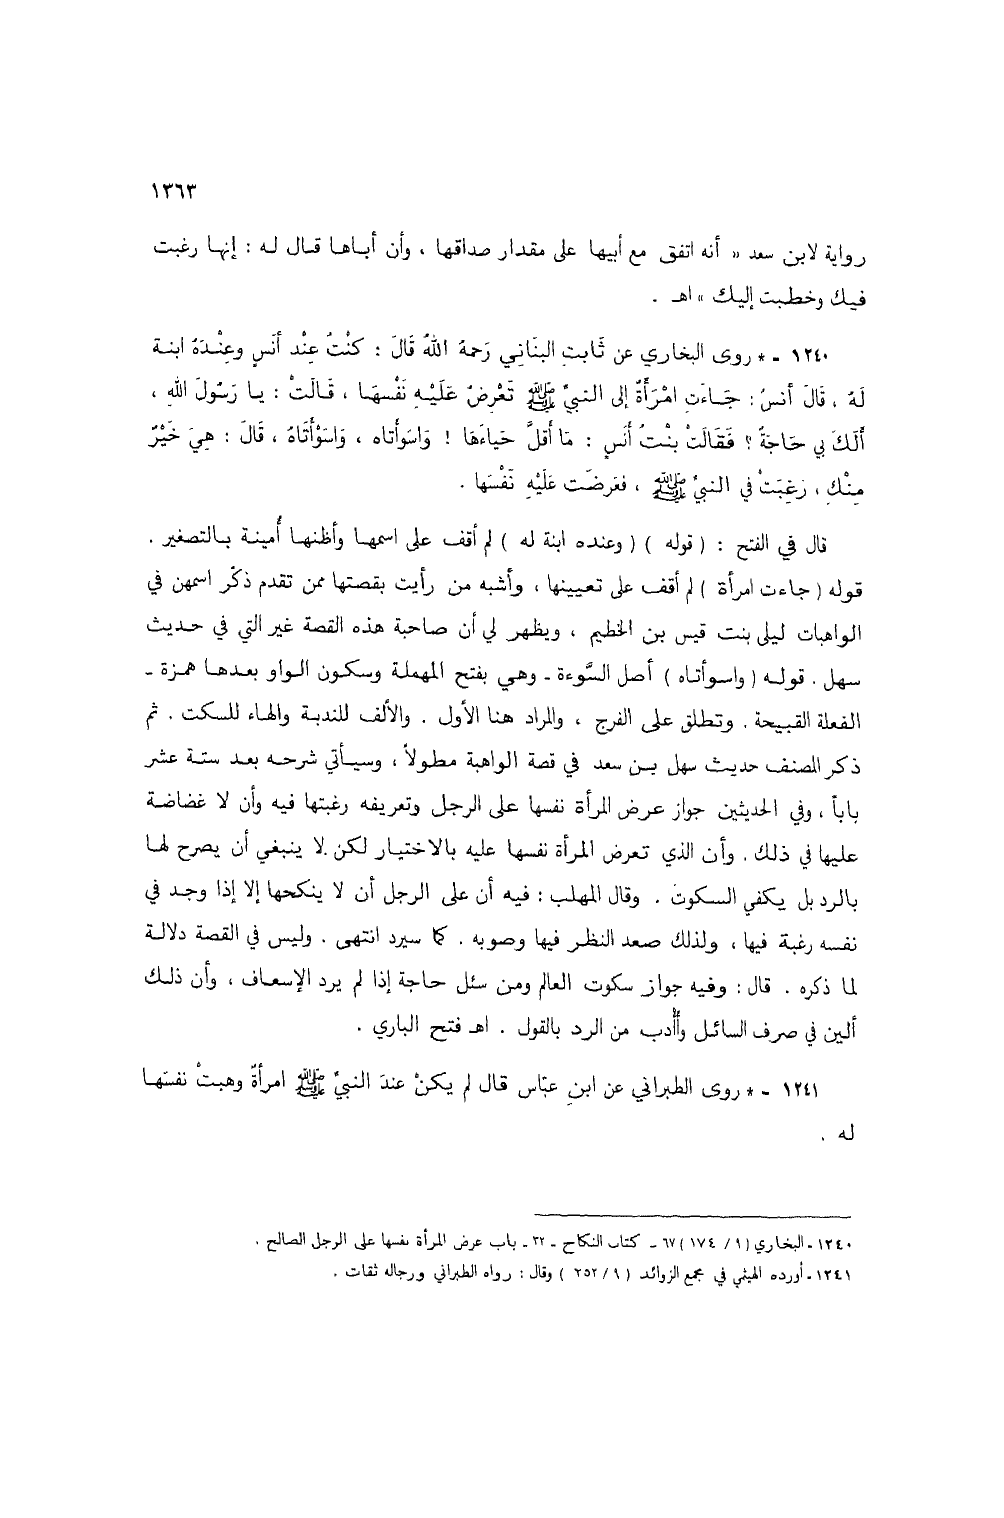 ١٣٦٣
رواية لابن سعد « أنه اتفق مع أبيها على مقدار صداقها ، وأن أباها قال له : إنها رغبت
فيك وخطبت إليك » اهـ .
١٢٤٠ - * روى البخاري عن ثَابتِ البنَانِي رَحمهُ اللهُ قَالَ : كنْتُ عِنْد أنَسٍ وعِنْدَهُ ابنة
لَهُ ، قَالَ أنسُ : جَاءَتِ امْرَأَةٌ إلى النبيِّ ﷺ تَعْرِضُ عَلَيْهِ نَفْسَهَا ، قَالَتْ : يا رَسُولَ اللهِ ،
أَلَكَ بي حَاجَةٌ ؟ فَقَالَتْ بِنْتُ أنَسٍ : مَا أقلَّ حَيَاءَهَا ! وَاسَوأتَاه ، وَاسَوْأتَاهُ ، قَالَ : هِيَ خَيْرٌ
مِنْكِ ، رَغِبَتْ في النبيِّ ﷺ ، فعَرضَت عَلَيْهِ نَفْسَها .
قال في الفتح : ( قوله ) ( وعنده ابنة له ) لم أقف على اسمها وأظنها أُمينة بالتصغير .
قوله ( جاءت امرأة ) لم أقف على تعيينها ، وأشبه من رأيت بقصتها ممن تقدم ذكْر اسمهن في
الواهبات ليلى بنت قيس بن الخطيم ، ويظهر لي أن صاحبة هذه القصة غير التي في حديث
سهل . قوله ( واسوأتاه ) أصل السَّوءة - وهي بفتح المهملة وسكون الواو بعدها همزة -
الفعلة القبيحة . وتطلق على الفرج ، والمراد هنا الأول . والألف للندبة والهاء للسكت . ثم
ذكر المصنف حديث سهل بن سعد في قصة الواهبة مطولاً ، وسيأتي شرحه بعد ستة عشر
باباً ، وفي الحديثين جواز عرض المرأة نفسها على الرجل وتعريفه رغبتها فيه وأن لا غضاضة
عليها في ذلك . وأن الذي تعرض المرأة نفسها عليه بالاختيار لكن لا ينبغي أن يصرح لها
بالرد بل يكفي السكوت . وقال المهلب : فيه أن على الرجل أن لا ينكحها إلا إذا وجد في
نفسه رغبة فيها ، ولذلك صعد النظر فيها وصوبه . كما سيرد انتهى . وليس في القصة دلالة
لما ذكره . قال : وفيه جواز سكوت العالم ومن سئل حاجة إذا لم يرد الإسعاف ، وأن ذلك
ألين في صرف السائل وأأدب من الرد بالقول . اهـ فتح الباري .
١٢٤١ - * روى الطبراني عن ابنِ عبّاس قال لم يكنْ عندَ النبيِّ ﷺ امرأةٌ وهبتْ نفسَها
له .
١٢٤٠ - البخاري ( ٩ / ١٧٤ ) ٦٧ - كتاب النكاح - ٣٢ - باب عرض المرأة نفسها على الرجل الصالح .
١٢٤١ - أورده الهيثمي في مجمع الزوائد ( ٩ / ٢٥٢ ) وقال : رواه الطبراني ورجاله ثقات .